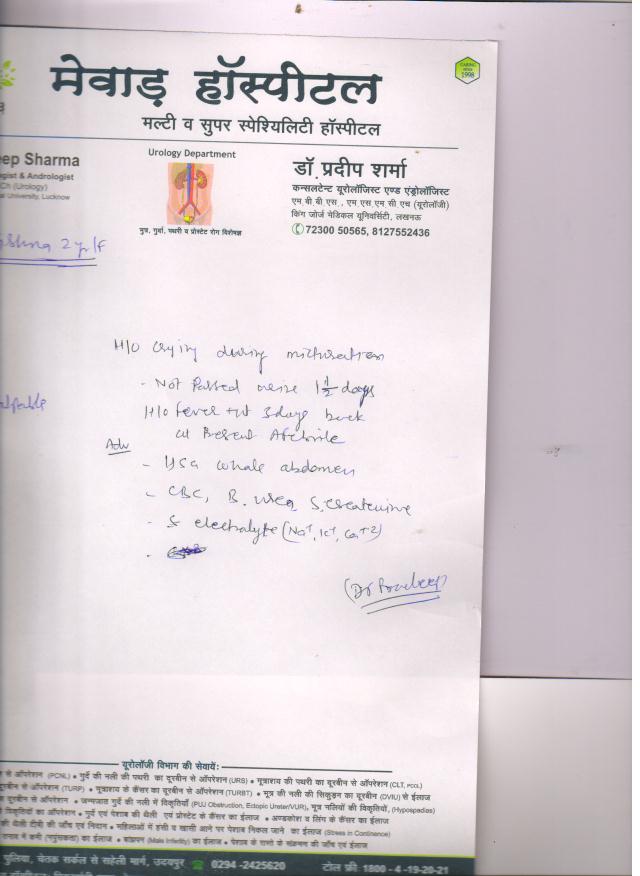 मेवाड़ हॉस्पीटल
CARING SINCE 1998
मल्टी व सुपर स्पेश्यिलिटी हॉस्पीटल
eep Sharma
gist & Andrologist
Ch (Urology)
al University, Lucknow
Urology Department
मुत्र, गुर्दा, पथरी व प्रोस्टेट रोग विशेषज्ञ
डॉ. प्रदीप शर्मा
कन्सलटेन्ट यूरोलॉजिस्ट एण्ड एंड्रोलॉजिस्ट
एम.बी.बी.एस., एम.एस.एम.सी.एच (यूरोलॉजी)
किंग जोर्ज मेडिकल यूनिवर्सिटी, लखनऊ
72300 50565, 8127552436
shna 2 yr/F
H/O crying during micturation
- Not Passed urine 1 1/2 days
alpable
H/O fever +nt 3 days back
at Present Afebrile
Adv
- USG whole abdomen
- CBC, B. urea, S. creatinine
- S electrolyte (Na+, K+, Ca+2)
(Dr Pradeep)
यूरोलॉजी विभाग की सेवायें:
से ऑपरेशन (PCNL) • गुर्दे की नली की पथरी का दूरबीन से ऑपरेशन (URS) • मूत्राशय की पथरी का दूरबीन से ऑपरेशन (CLT, PCCL)
दूरबीन से ऑपरेशन (TURP) • मूत्राशय के कैंसर का दूरबीन से ऑपरेशन (TURBT) • मूत्र की नली की सिकुड़न का दूरबीन (DVIU) से ईलाज
दूरबीन से ऑपरेशन • जन्मजात गुर्दे की नली में विकृतियाँ (PUJ Obstruction, Ectopic Ureter/VUR), मूत्र नलियों की विकृतियाँ, (Hypospadias)
विकृतियों का ऑपरेशन • गुर्दे एवं पेशाब की थैली एवं प्रोस्टेट के कैंसर का ईलाज • अण्डकोश व लिंग के कैंसर का ईलाज
की थैली टीबी की जाँच एवं निदान • महिलाओं में हंसी व खासी आने पर पेशाब निकल जाने का ईलाज (Stress in Continence)
में कमी (नपुंसकता) का ईलाज • बांझपन (Male Infertility) का ईलाज • पेशाब के रास्ते के संक्रमण की जाँच एवं ईलाज
पुलिया, चेतक सर्कल से सहेली मार्ग, उदयपुर 0294 -2425620 टोल फ्री: 1800 - 4 -19-20-21